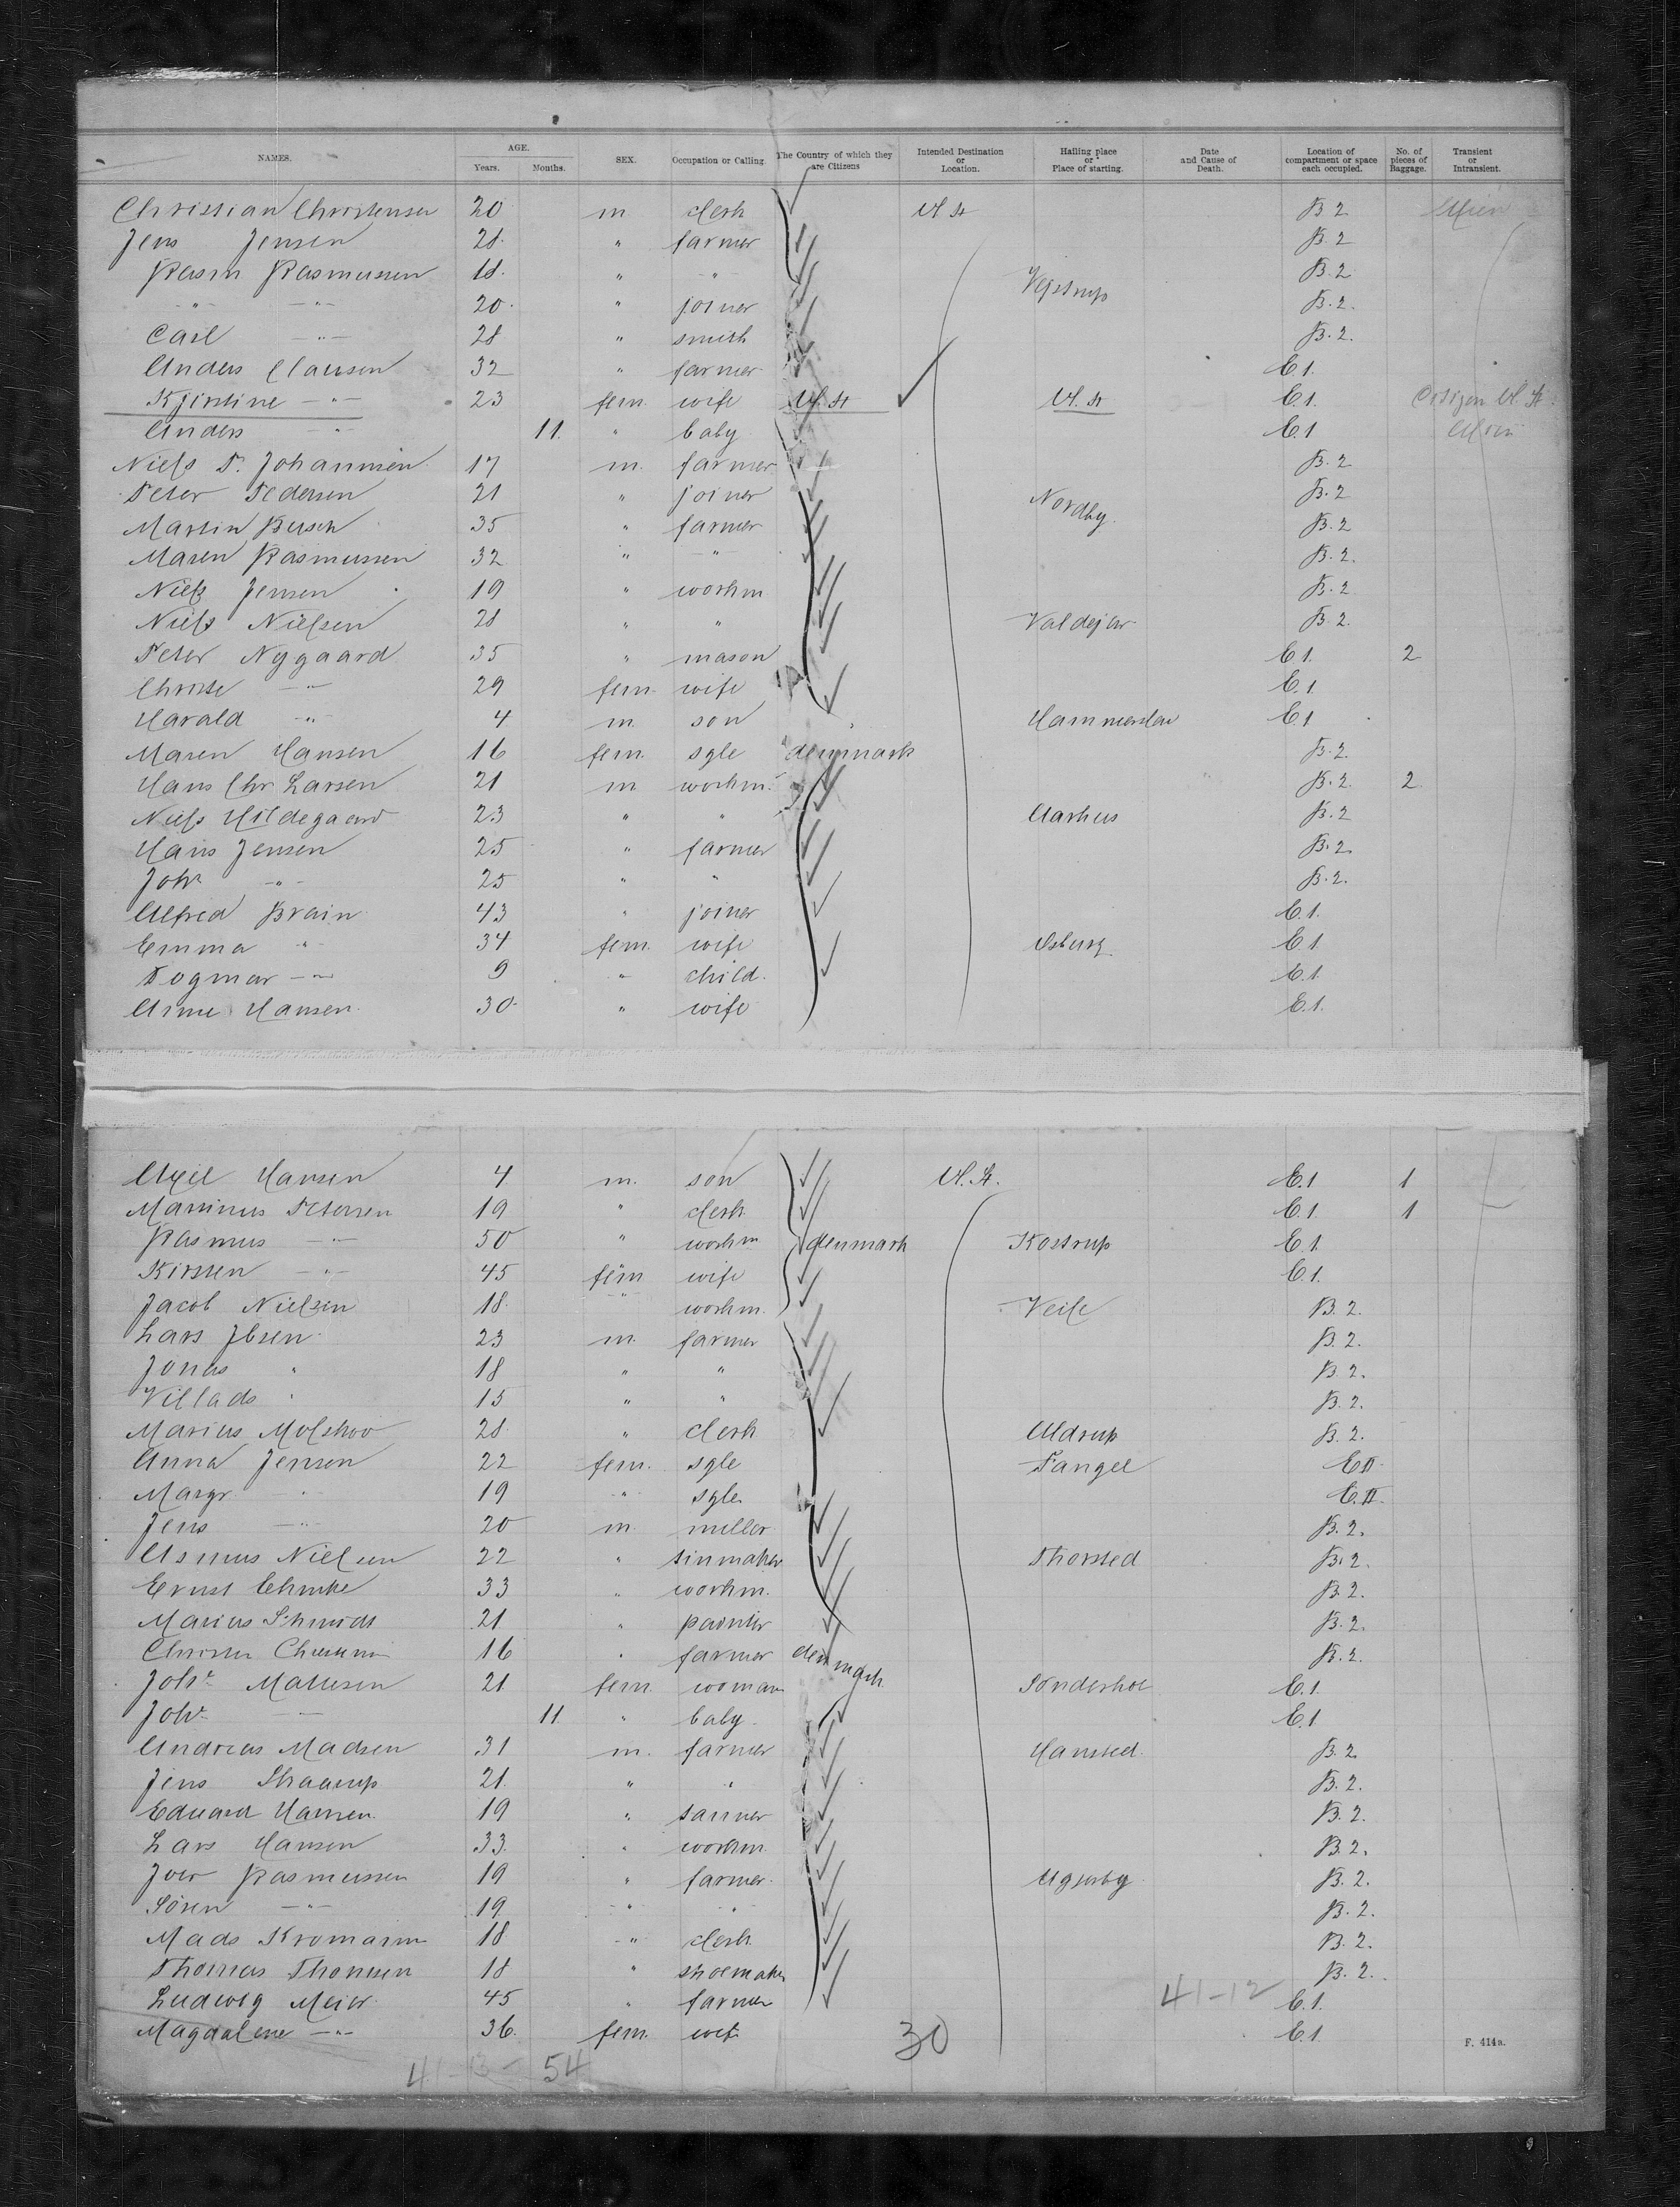 NAMES. AGE. SEX. Occupation or Calling. The Country of which they are Citizens Intended Destination or Location. Hailing place or Place of starting. Date and Cause of Death. Location of compartment or space each occupied. No. of pieces of Baggage. Transient or Intransient.
Years. Months.
Christian Christensen 20 m clerk U St B 2
Jens Jensen 28 " farmer B. 2
Rasm Rasmussen 18 " " Vejstrup B. 2
" " 20 " joiner B. 2.
Carl " 28 " smith B. 2.
Anders Clausen 32 " farmer E 1.
Kjirstine " 23 fem. wife U. St U. St E 1. Citizen U. St.
Anders " 11. " baby E 1
Niels P. Johannsen 17 m. farmer B. 2
Peter Pedersen 21 " joiner Nordby B. 2
Martin Busch 35 " farmer B. 2
Maren Rasmussen 32 " " B. 2.
Niels Jensen 19 " workm B. 2
Niels Nielsen 28 " " Valdejar B. 2.
Peter Nygaard 35 " mason E 1. 2
Christe " 29 fem. wife E. 1.
Harald " 4 m. son E 1
Maren Hansen 16 fem. sgle denmark B. 2.
Hans Chr Larsen 21 m workm. B. 2. 2
Niels Hildegaard 23 " " Aarhus B. 2
Hans Jensen 25 " farmer B. 2.
Johs " 25 " " B. 2.
Alfred Brain 43 " joiner E. 1.
Emma " 34 fem. wife E 1.
Dogmar " 9 " child. E 1.
Anne Hansen 30 " wife E. 1.
Axel Hansen 4 m. son U. St. E. 1 1
Marinus Petersen 19 " clerk E. 1 1
Rasmus " 50 " workm denmark Kostrup E 1.
Kirsten " 45 fem wife E 1.
Jacob Nielsen 18. " workm. Veile B. 2.
Lars Ibsen 23 m. farmer B. 2.
Jonas " 18 " " B. 2.
Villads " 15 " " B. 2.
Marius Molskov 28 " clerk Aldrup B. 2.
Anna Jensen 22 fem. sgle Tangel E II
Margr " 19 " sgle. E. II.
Jens " 20 m. miller B. 2.
Asmus Nielsen 22 " tinmaker Thorsted B. 2.
Ernst Ehmke 33 " workm. B. 2.
Marius Schmidt 21 " painter B. 2.
16 " farmer denmark B. 2.
Johs Madsen 21 fem. woman Sonderhoe E. 1.
Johs " 11. " baby E. 1
Andreas Madsen 31 m. farmer Hansted B. 2
Jens Skaarup 21. " " B. 2.
Eduard Hansen 19 " tanner B. 2.
Lars Hansen 33. " workm B. 2.
Jver Rasmussen 19 " farmer. B. 2.
Sören " 19. " " B. 2.
Mads Kromann 18 " clerk B. 2.
Thomas Thomsen 18 " shoemaker B. 2.
Ludwig Meier 45 " farmer 41-12 E 1.
Magdalene " 36 fem. wife 30 E. 1
F. 414a.
54